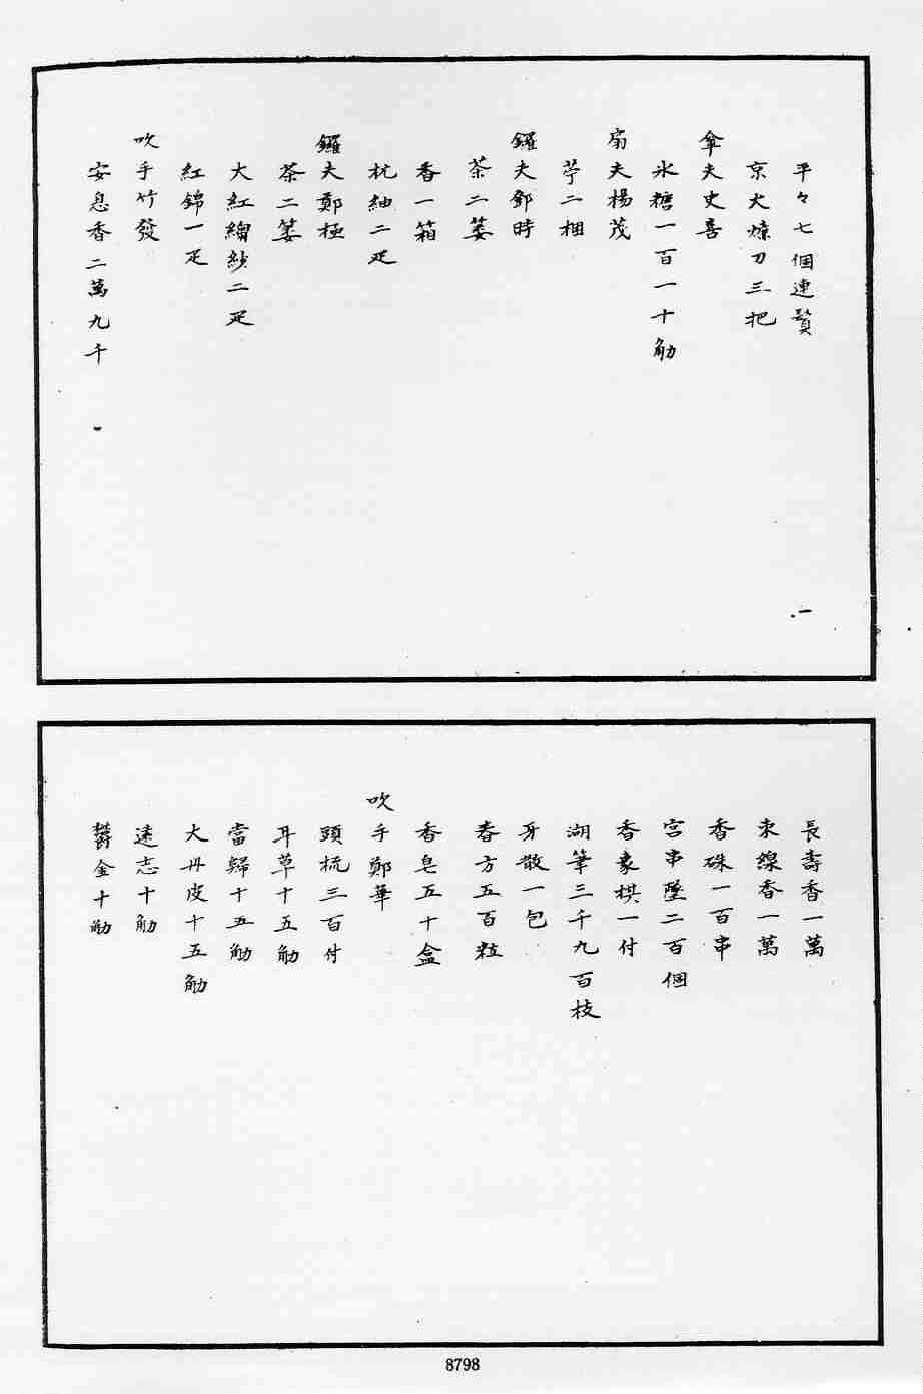 平々七個連質
京大爍刀三把
傘夫史喜
氷糖一百一十觔
扇夫楊茂
苧二梱
鑼夫鄧時
茶二蔞
香一箱
杭紬二疋
鑼夫鄭極
茶二蔞
大紅縐紗二疋
紅錦一疋
吹手竹發
安息香二萬九千
長壽香一萬
束線香一萬
香硃一百串
宮串墜二百個
香象棋一付
湖筆三千九百枝
牙散一包
春方五百粒
香皂五十盒
吹手鄭華
頭梳三百付
耳草十五觔
當歸十五觔
大丹皮十五觔
遠志十觔
欝金十觔
8798